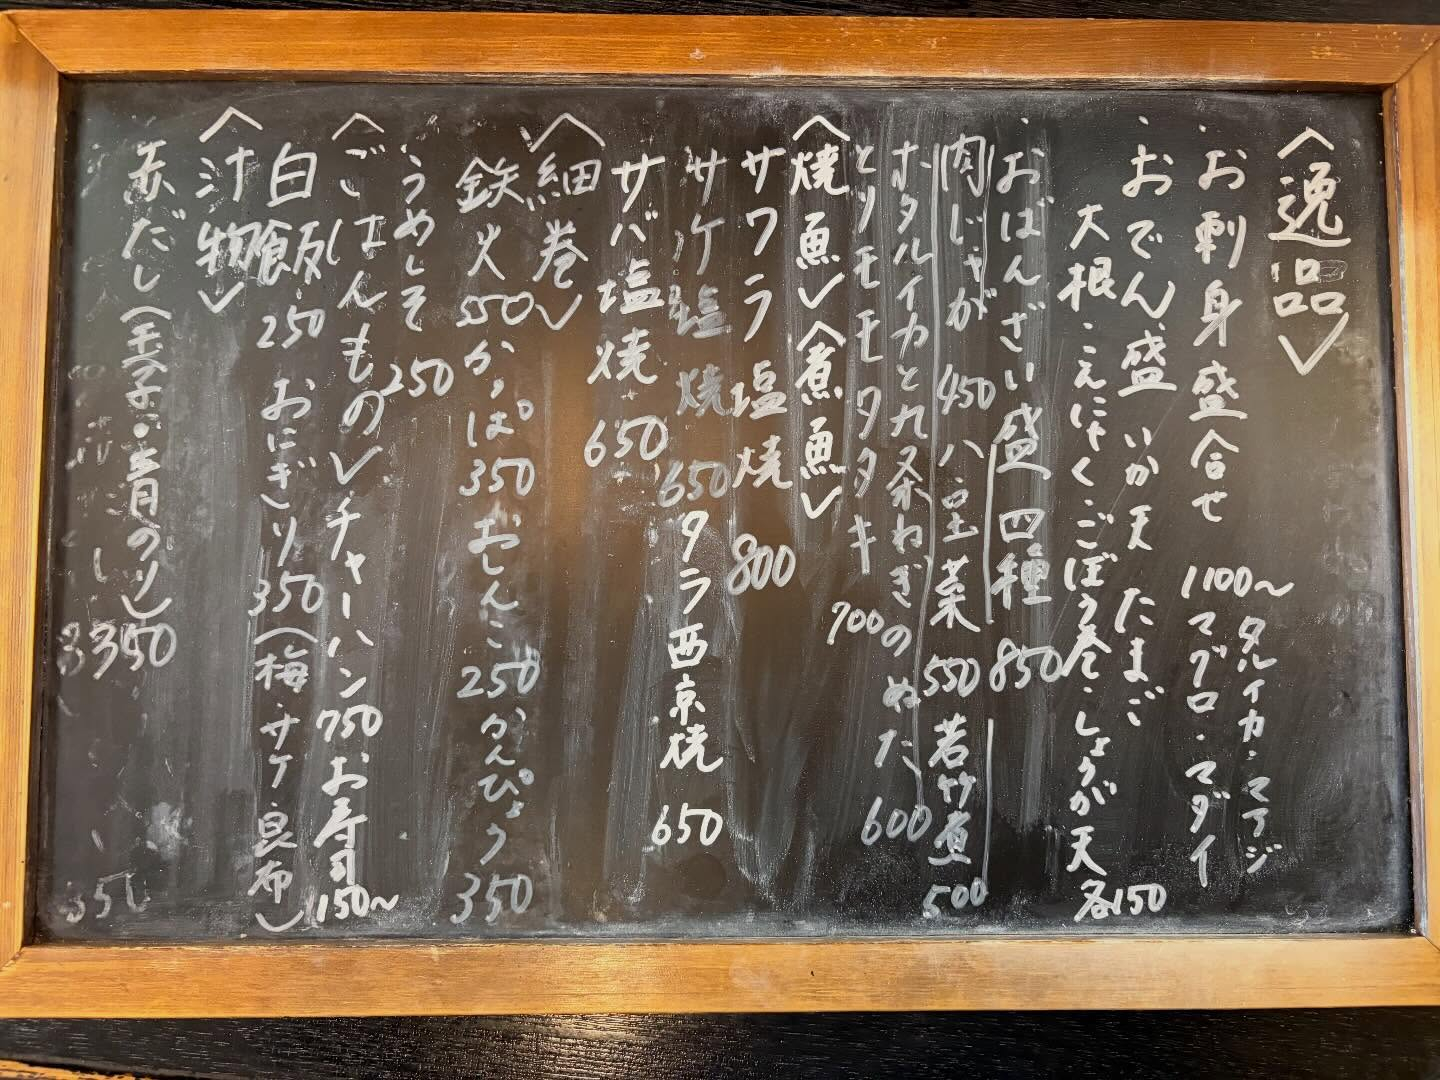 〈逸品〉
・お刺身盛合せ 1100〜 タルイカ・マアジ
マグロ・マダイ
・おでん盛 いか天 たまご
大根・こんにゃく・ごぼう巻・しょうが天 各150
・おばんざい盛四種 850
肉じゃが 450 八宝菜 550 若竹煮 500
ホタルイカと九条ねぎのぬた 600
とりモモタタキ 700
〈焼魚〉〈煮魚〉
サワラ塩焼 800
サケ塩焼 650 タラ西京焼 650
サバ塩焼 650
〈細巻〉
鉄火 550 かっぱ 350 おしんこ 250 かんぴょう 350
・うめしそ 250
〈ごはんもの〉チャーハン 750 お寿司 150〜
白飯 250 おにぎり 350 (梅・サケ・昆布)
〈汁物〉
赤だし(玉子・青のり) 350